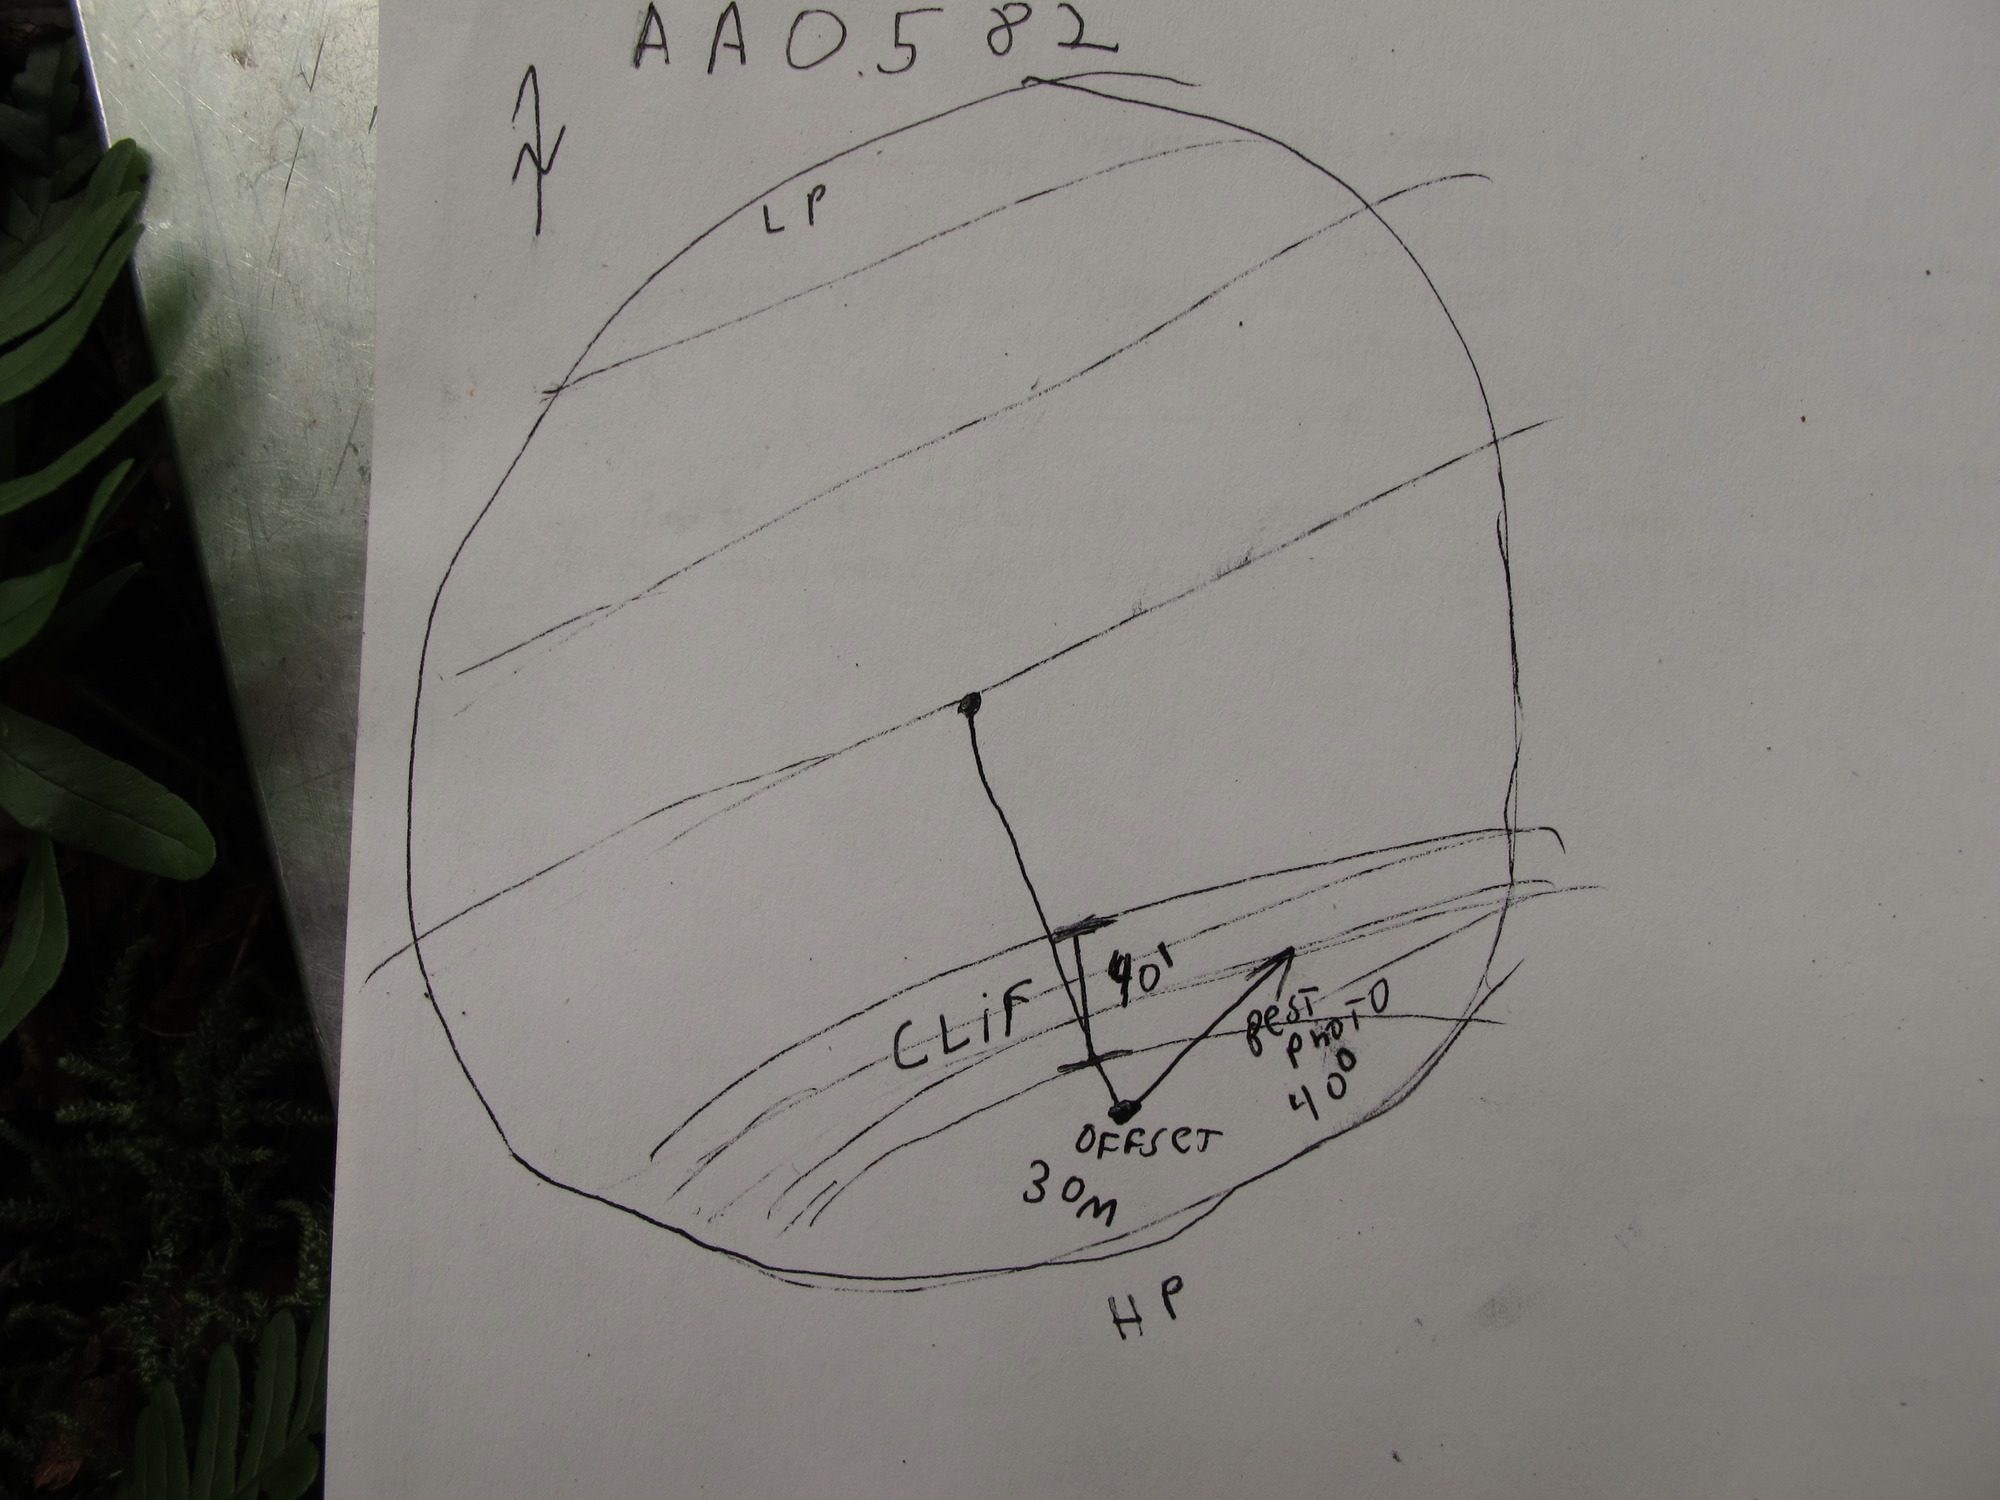 AAO.582
N
LP
CLiF
40'
BEST
PHOTO
40°
OFFSET
30m
HP